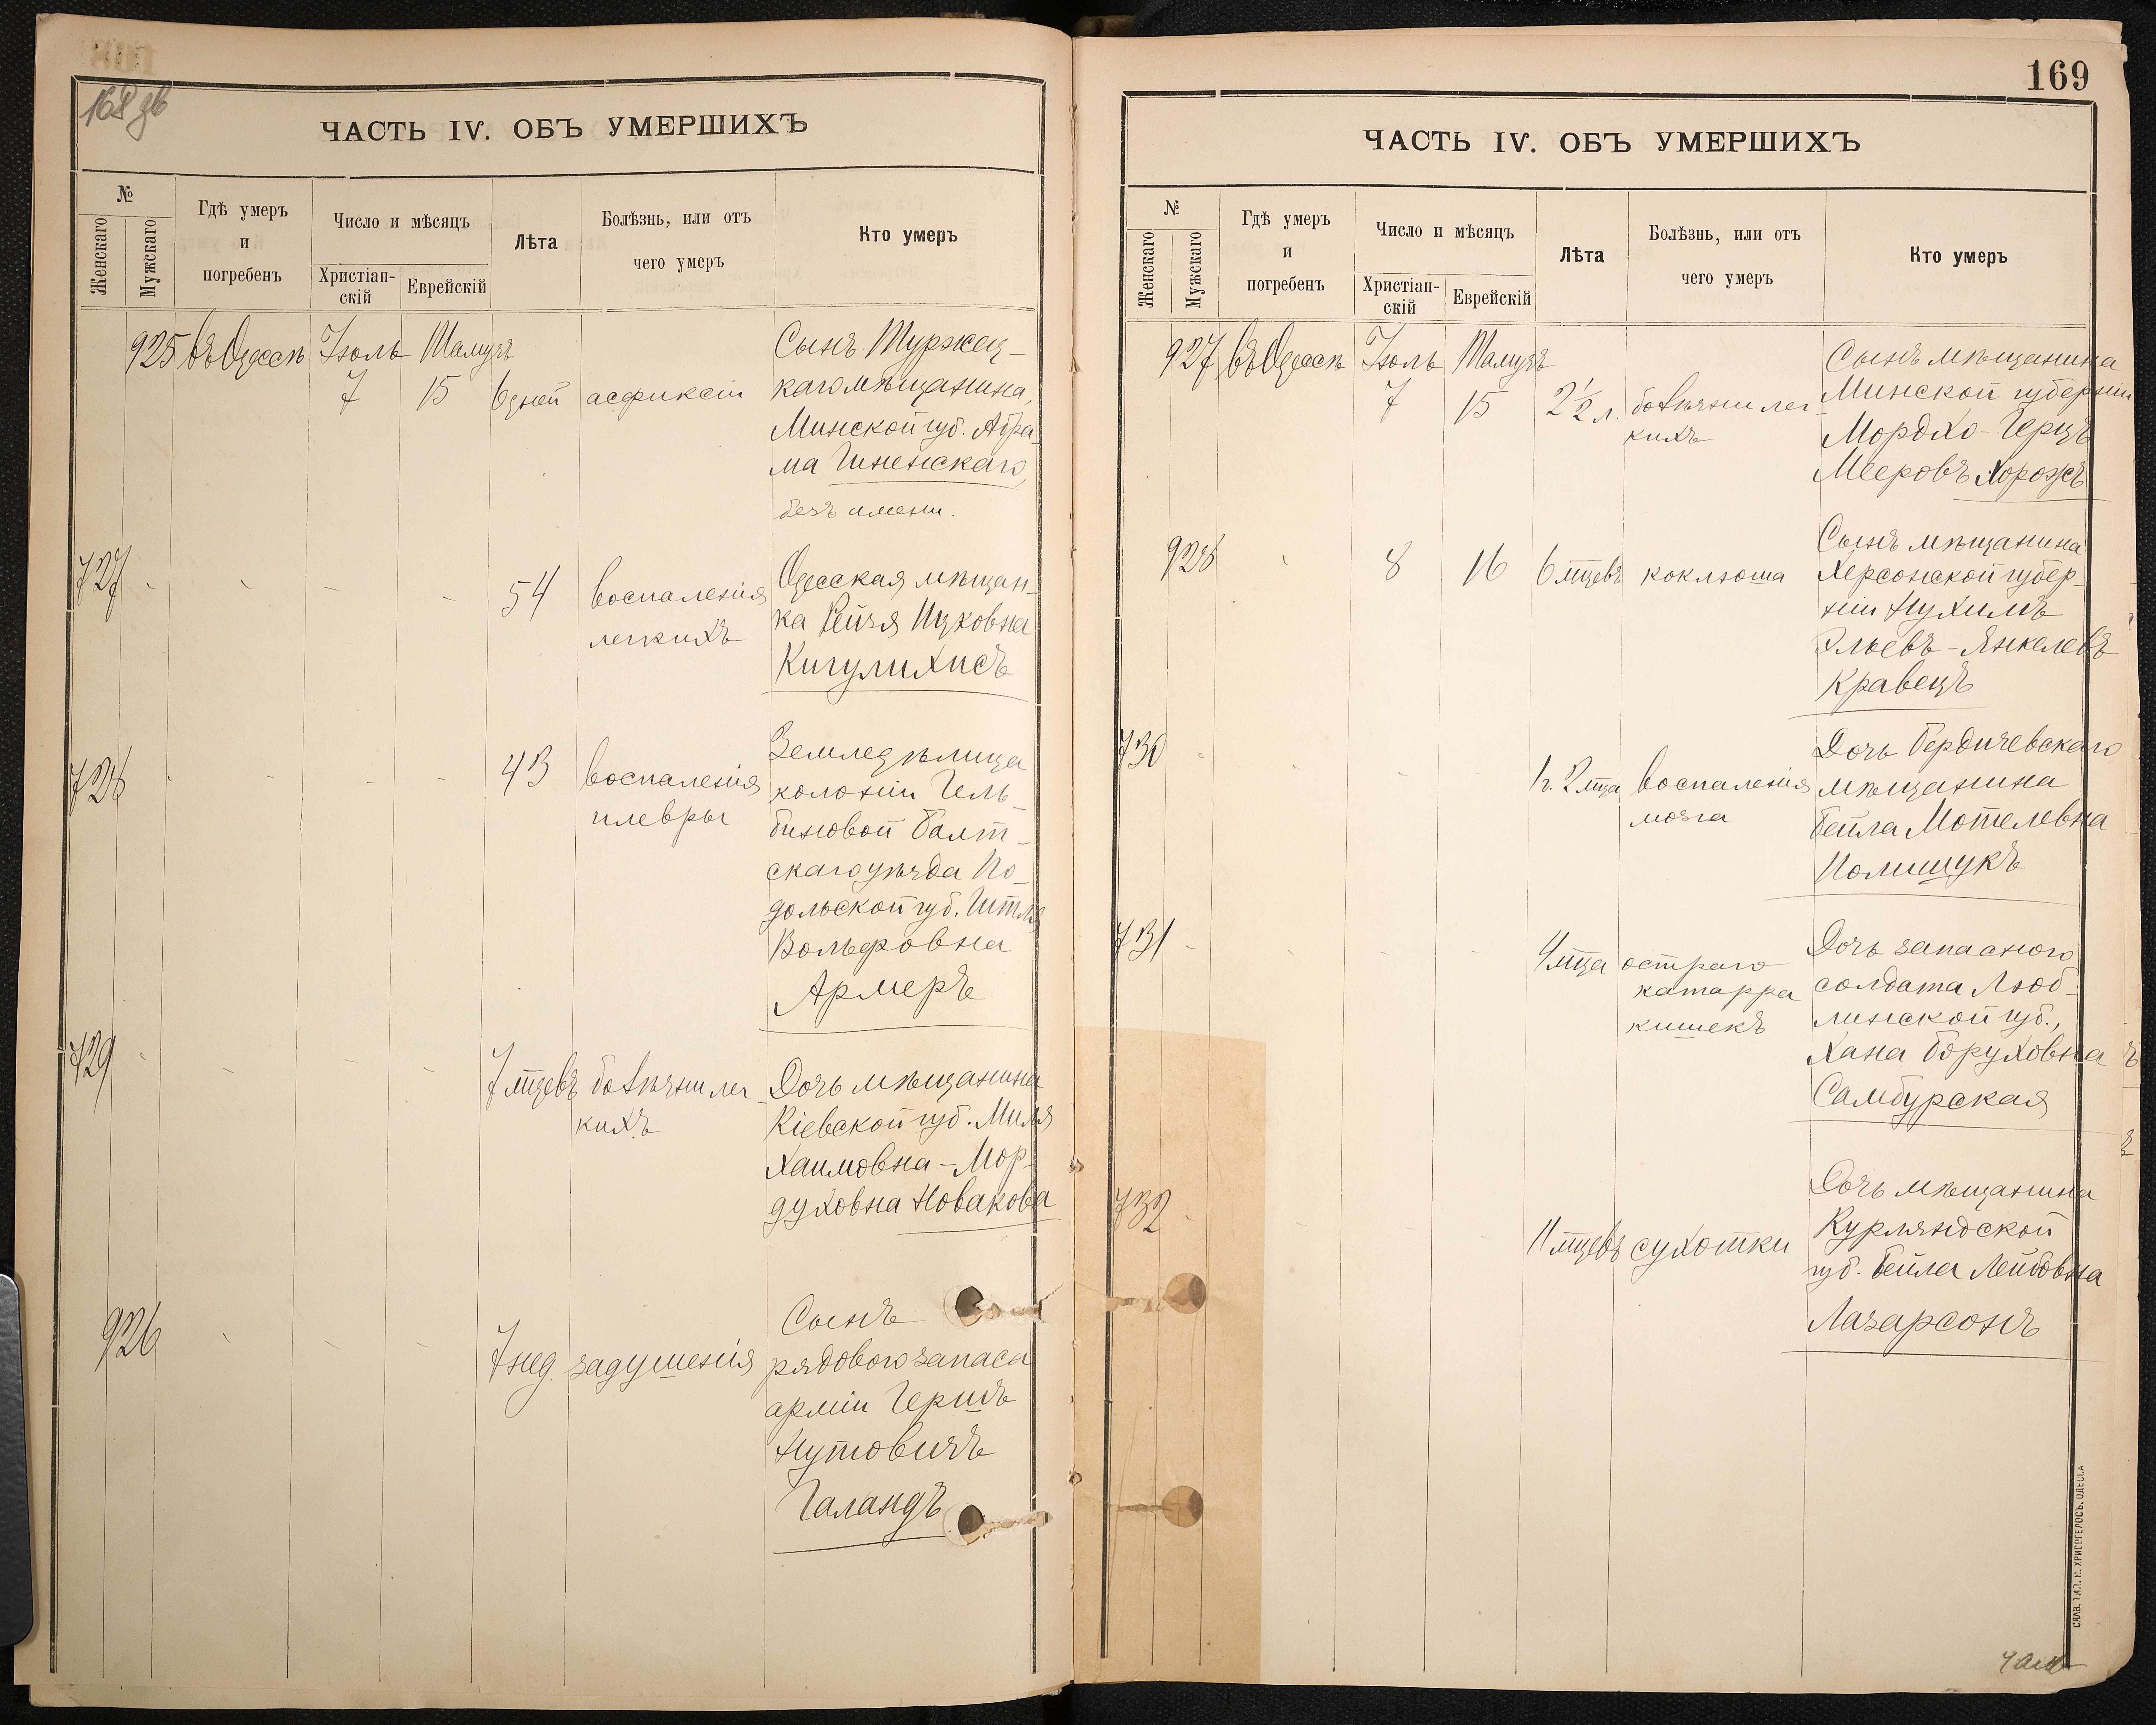 168 зв
ЧАСТЬ IV. ОБЪ УМЕРШИХЪ
№
Женскаго
Мужскаго
Гдѣ умеръ
и
погребенъ
Число и мѣсяцъ
Христіан-
скій
Еврейскій
Лѣта
Болѣзнь, или отъ
чего умеръ
Кто умеръ
925 въ Одессѣ Іюль Тамузъ
7 15 6 дней асфиксіи
Сынъ Туржец-
каго мѣщанина,
Минской губ. Абра-
ма Гиненскаго,
безъ имени.
727 54 воспаленія
легкихъ
Одесская мѣщан-
ка Рейзя Ицковна
Кигулихисъ
728 43 воспаленія
плевры
Земледѣлица
колоніи Гель-
биновой Балт-
скаго уѣзда По-
дольской губ. Гитля
Вольфовна
Армеръ
729 7 мцевъ болѣзни лег-
кихъ
Дочь мѣщанина
Кіевской губ. Миля
Хаимовна-Мор-
духовна Новакова
926 7 нед. задушенія
Сынъ
рядового запаса
арміи Гершъ
Нутовичъ
Галандъ
169
ЧАСТЬ IV. ОБЪ УМЕРШИХЪ
№
Женскаго
Мужскаго
Гдѣ умеръ
и
погребенъ
Число и мѣсяцъ
Христіан-
скій
Еврейскій
Лѣта
Болѣзнь, или отъ
чего умеръ
Кто умеръ
927 въ Одессѣ Іюль Тамузъ
7 15 2 1/2 л. болѣзни лег-
кихъ
Сынъ мѣщанина
Минской губерніи
Мордхо-Герцъ
Мееровъ Хорожъ
928 8 16 6 мцевъ коклюша
Сынъ мѣщанина
Херсонской губер-
ніи Нухимъ
Эльевъ-Янкелевъ
Кравецъ
730 1 г. 2 мца воспаленія
мозга
Дочь Бердичевскаго
мѣщанина
Бейла Мотелевна
Полищукъ
731 4 мца остраго
катарра
кишекъ
Дочь запасного
солдата Люб-
линской губ.,
Хана Боруховна
Самбурская
732 11 мцевъ сухотки
Дочь мѣщанина
Курляндской
губ. Бейла Лейбовна
Лазарсонъ